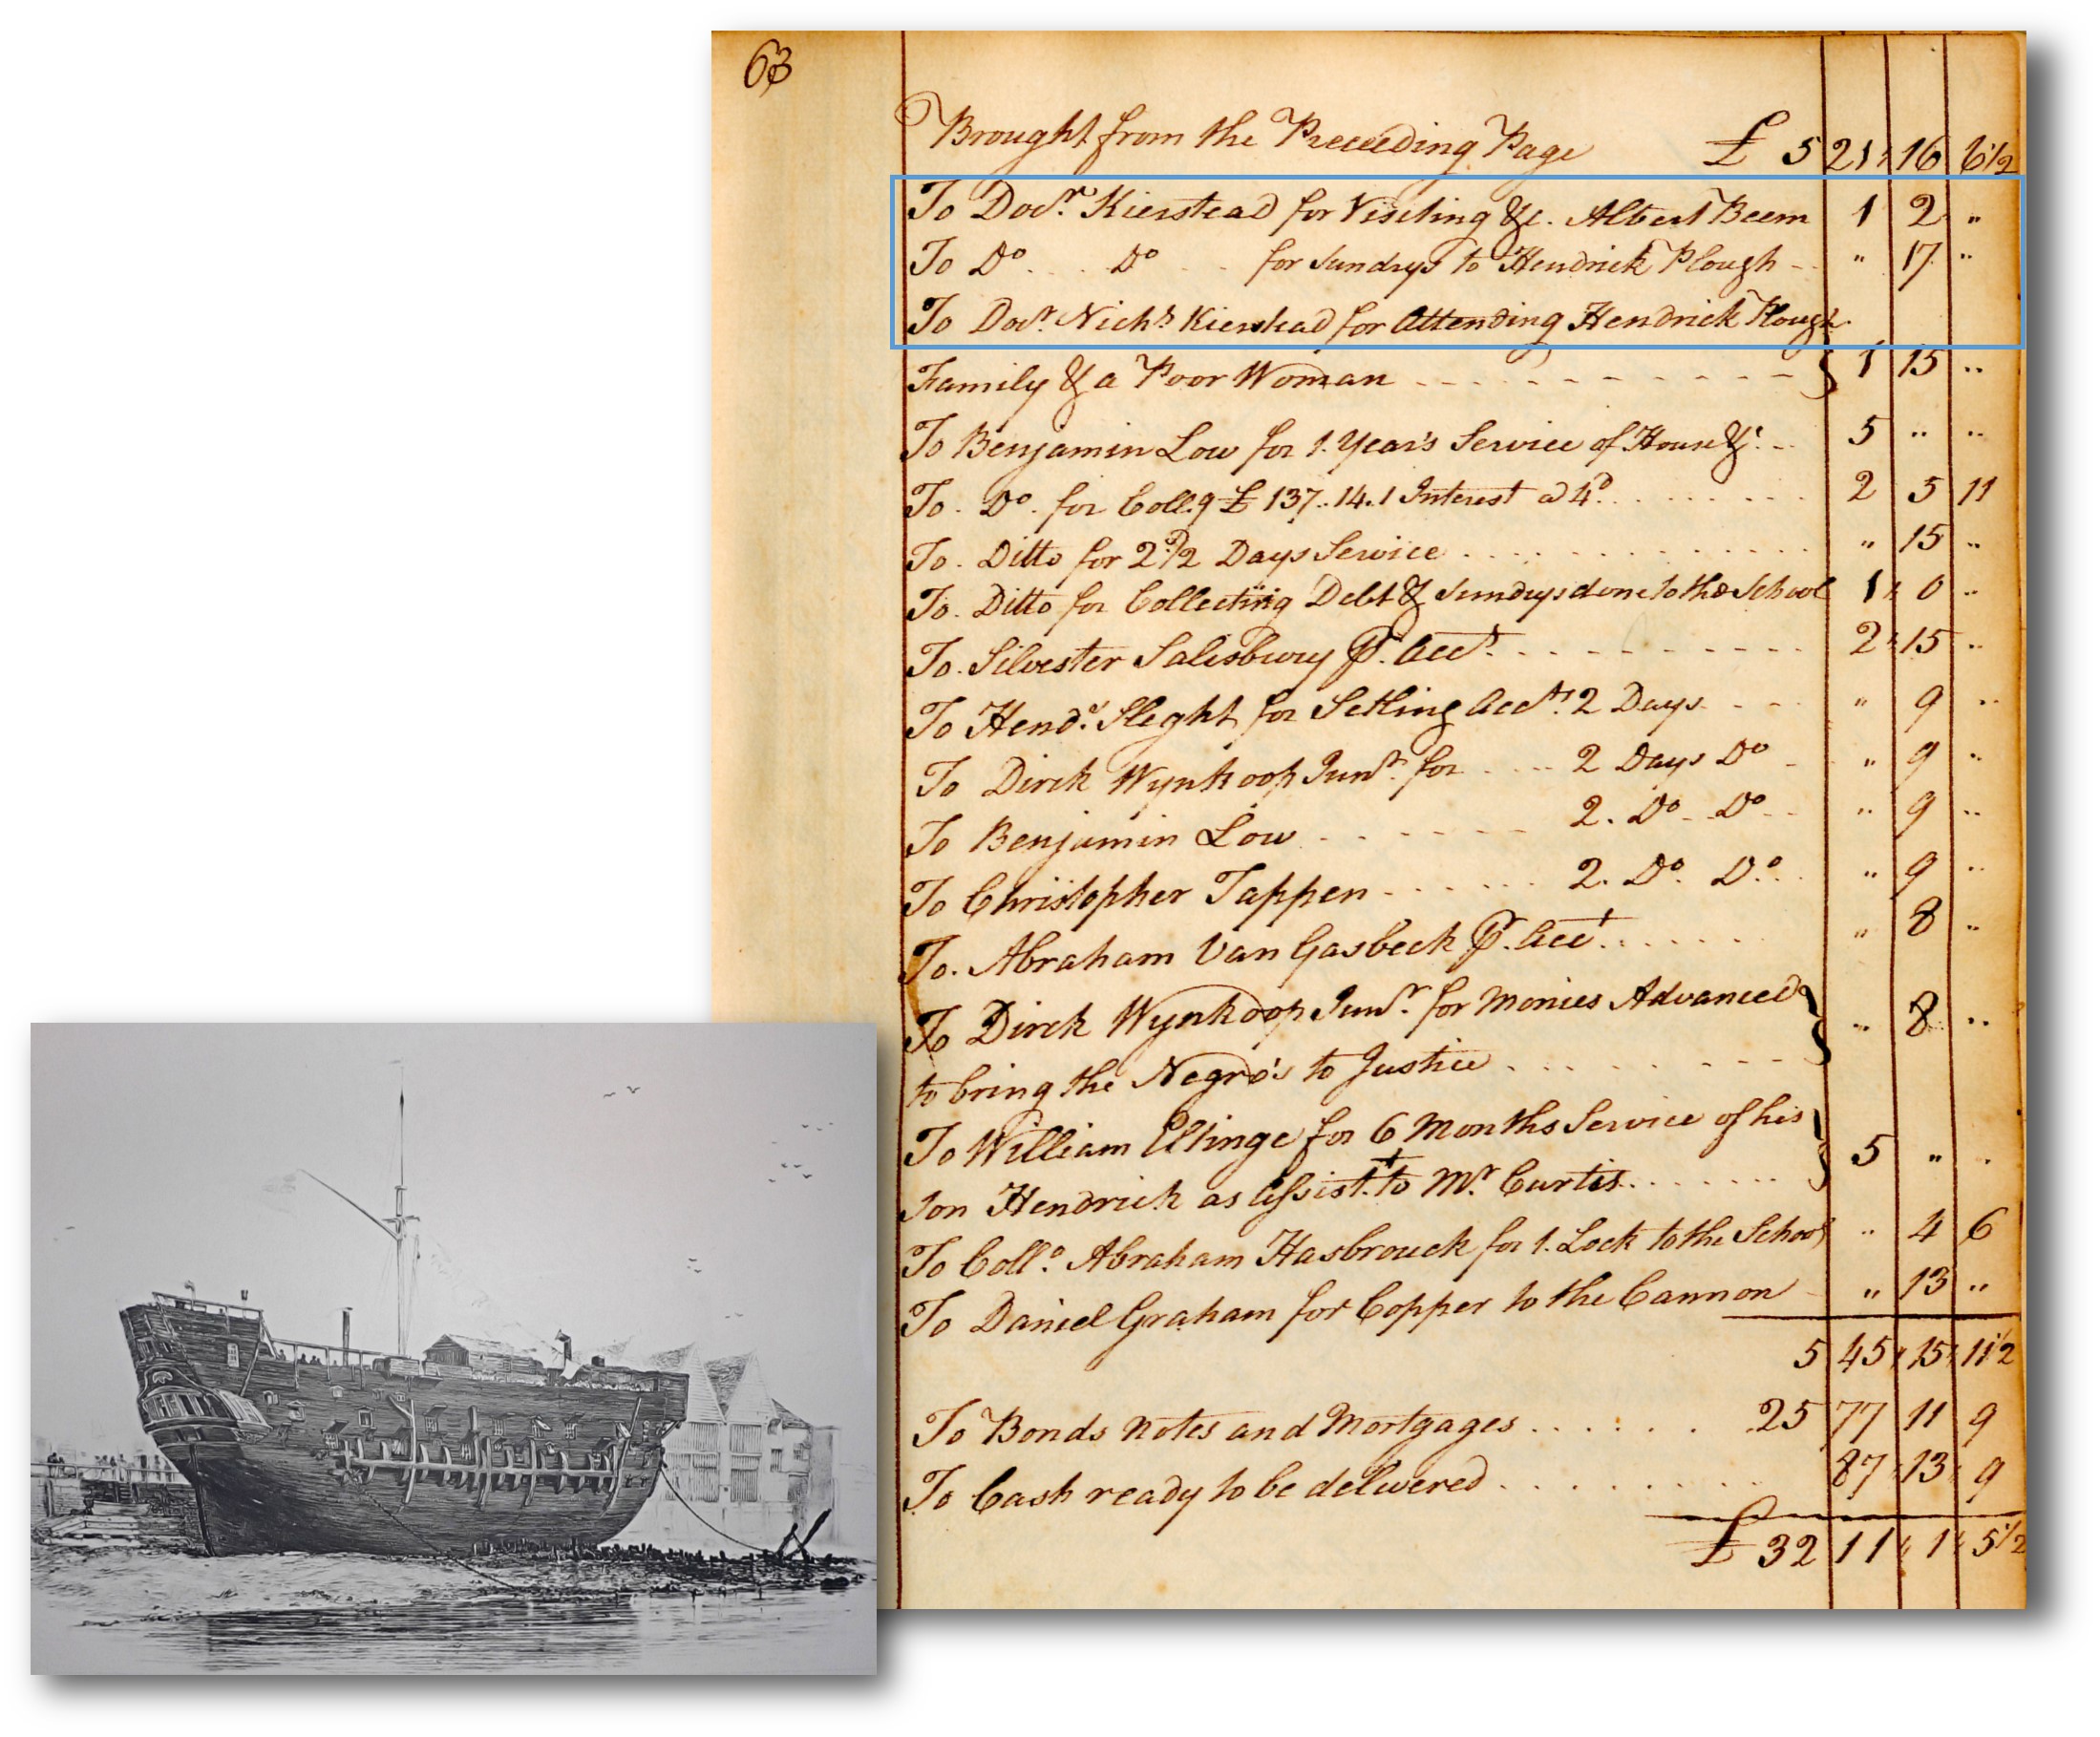 63
Brought from the Preceeding Page £ 521 16 6 1/2
To Docr. Kierstead for Visiting &c. Albert Beem 1 2 "
To Do .. Do .. for Sundrys to Hendrick Plough -- " 17 "
To Docr. Nichs Kierstead for Attending Hendrick Plough
Family & a Poor Woman } 1 15 ..
To Benjamin Low for 1. Year's Service of House &c. -- 5 .. ..
To. Do. for Coll.g £ 137..14..1 Interest a 4d. 2 5 11
To. Ditto for 2 1/2 Days Service " 15 ..
To. Ditto for Collecting Debt & Sundrys done to the School 1 0 ..
To. Silvester Salisbury P. Acct. 2 15 ..
To Hend.k Sleght for Setling Acct.s 2 Days " 9 ..
To Dirck Wynkoop Junr. for 2 Days Do " 9 ..
To Benjamin Low 2. Do. Do .. 9 ..
To Christopher Tappen 2. Do. Do. " 9 ..
To. Abraham Van Gasbeek P. Acct. " 8 ..
To Dirck Wynkoop Junr. for Monies Advanced }
to bring the Negro's to Justice .. 8 ..
To William Eltinge for 6 Months Service of his }
Son Hendrick as Assist.t to Mr. Curtis 5 " .
To Coll.o Abraham Hasbrouck for 1. Lock to the School .. 4 6
To Daniel Graham for Copper to the Cannon " 13 ..
545 15 11 1/2
To Bonds Notes and Mortgages 2577 11 9
To Cash ready to be delivered 87 13 9
£ 3211 1 5 1/2